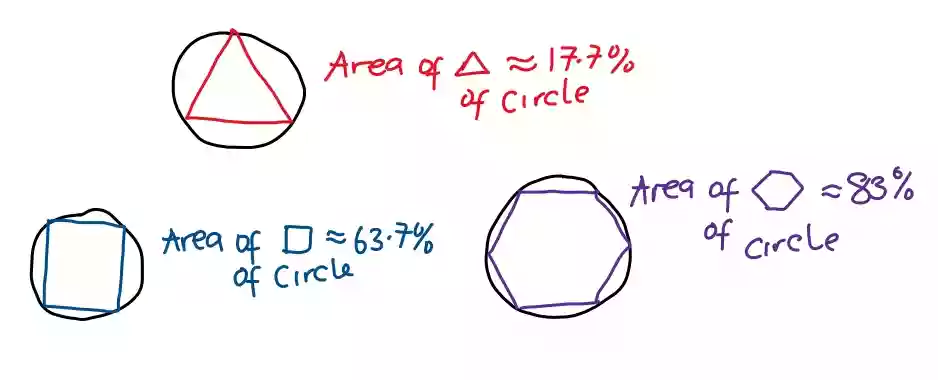 Area of △ ≈ 17.7%
of circle
Area of ⬡ ≈ 83%
of circle
Area of □ ≈ 63.7%
of circle